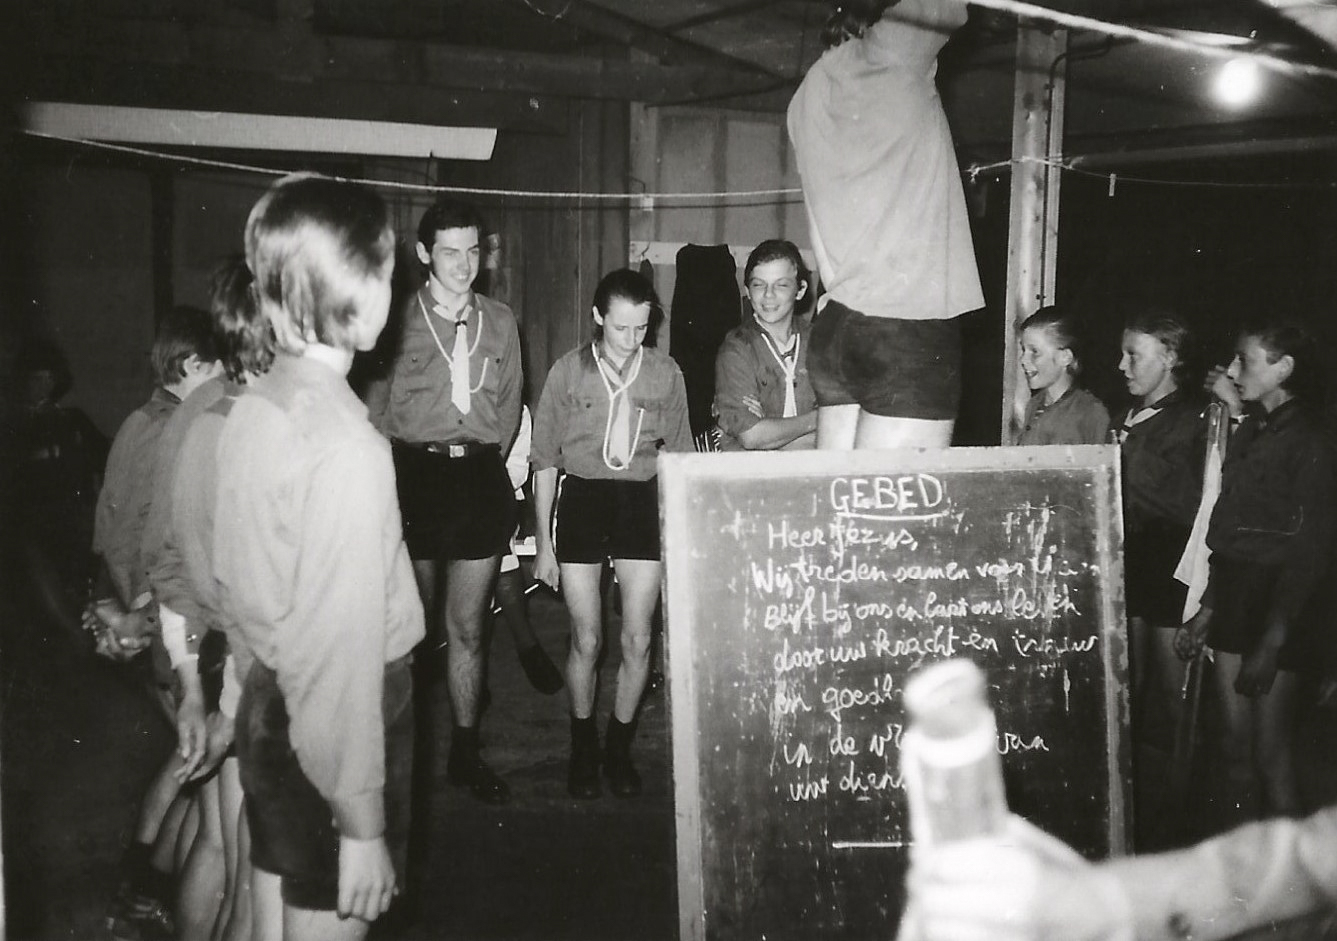 GEBED
Heer Jezus,
Wij treden samen voor U
Blijf bij ons en laat ons leven
door uw kracht en trouw
en goedh
in de vr van
uw diens